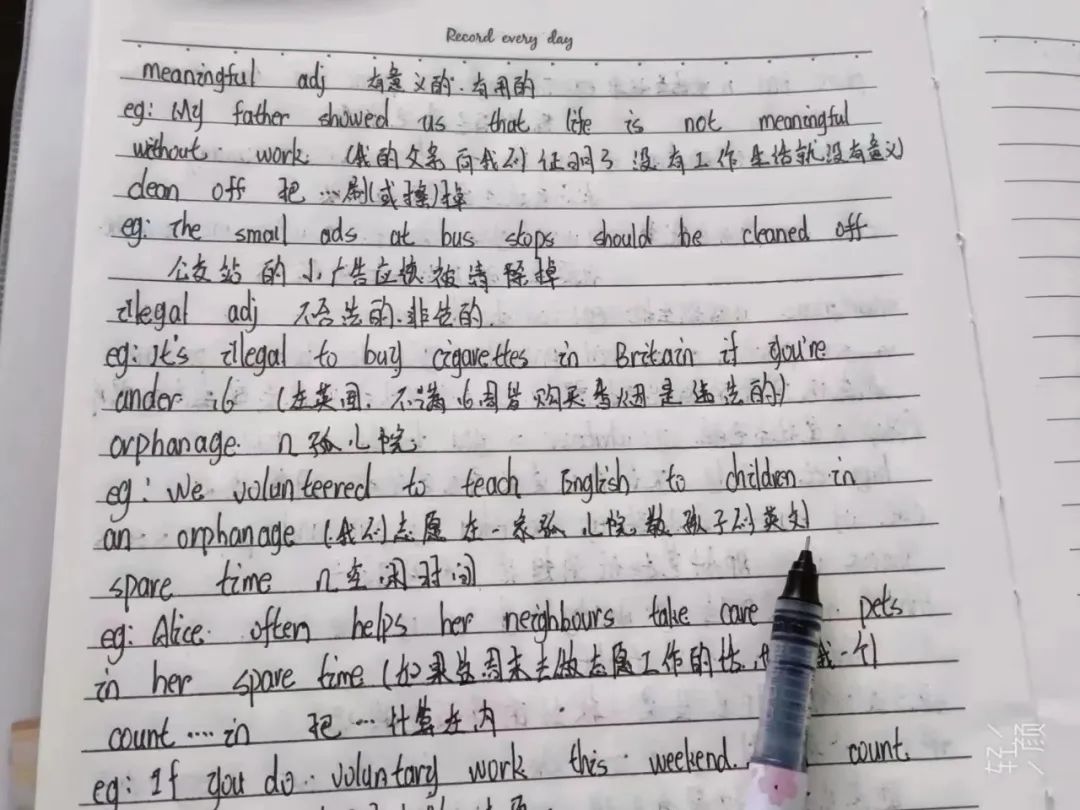 Record every day
meaningful adj 有意义的.有用的
eg: My father showed us that life is not meaningful
without work (我的父亲向我们证明了没有工作生活就没有意义)
clean off 把…刷(或擦)掉
eg: The small ads at bus stops should be cleaned off
公交站的小广告应该被清除掉
illegal adj 不合法的.非法的
eg: It's illegal to buy cigarettes in Britain if you're
under 16 (在英国, 不满16周岁购买香烟是违法的)
orphanage n 孤儿院
eg: We volunteered to teach English to children in
an orphanage (我们志愿在一家孤儿院教孩子们英文)
spare time n 空闲时间
eg: Alice often helps her neighbours take care pets
in her spare time (如果这周末去做志愿工作的话, 我一个)
count …. in 把…计算在内
eg: If you do voluntary work this weekend. count
轻颜